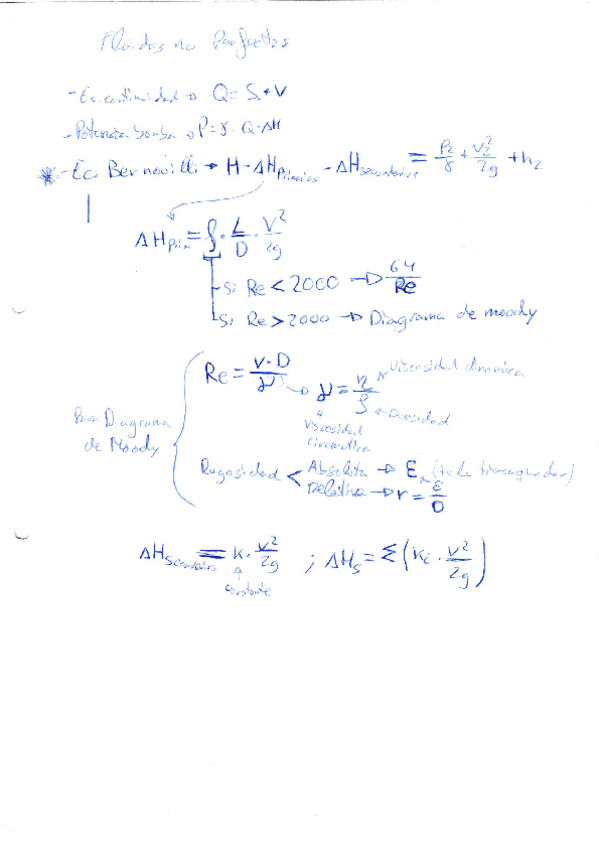 Fluidos no Perfectos
- Ec. continuidad → Q = S * V
- Potencia bomba → P = γ · Q · ΔH
* - Ec. Bernouilli → H - ΔH Primarios - ΔH secundarios = P₂/γ + V₂²/2g + h₂
ΔH Prim = f · L/D · V²/2g
Si Re < 2000 → 64/Re
Si Re > 2000 → Diagrama de moody
Para Diagrama de Moody
Re = V · D/ν → ν = η/ρ
Viscosidad dinamica
Densidad
Viscosidad cinematica
Rugosidad < Absoluta → ε
Relativa → r = ε/D
ΔH Secundarios = k · v²/2g ; ΔHs = Σ (Ki · v²/2g)
constante